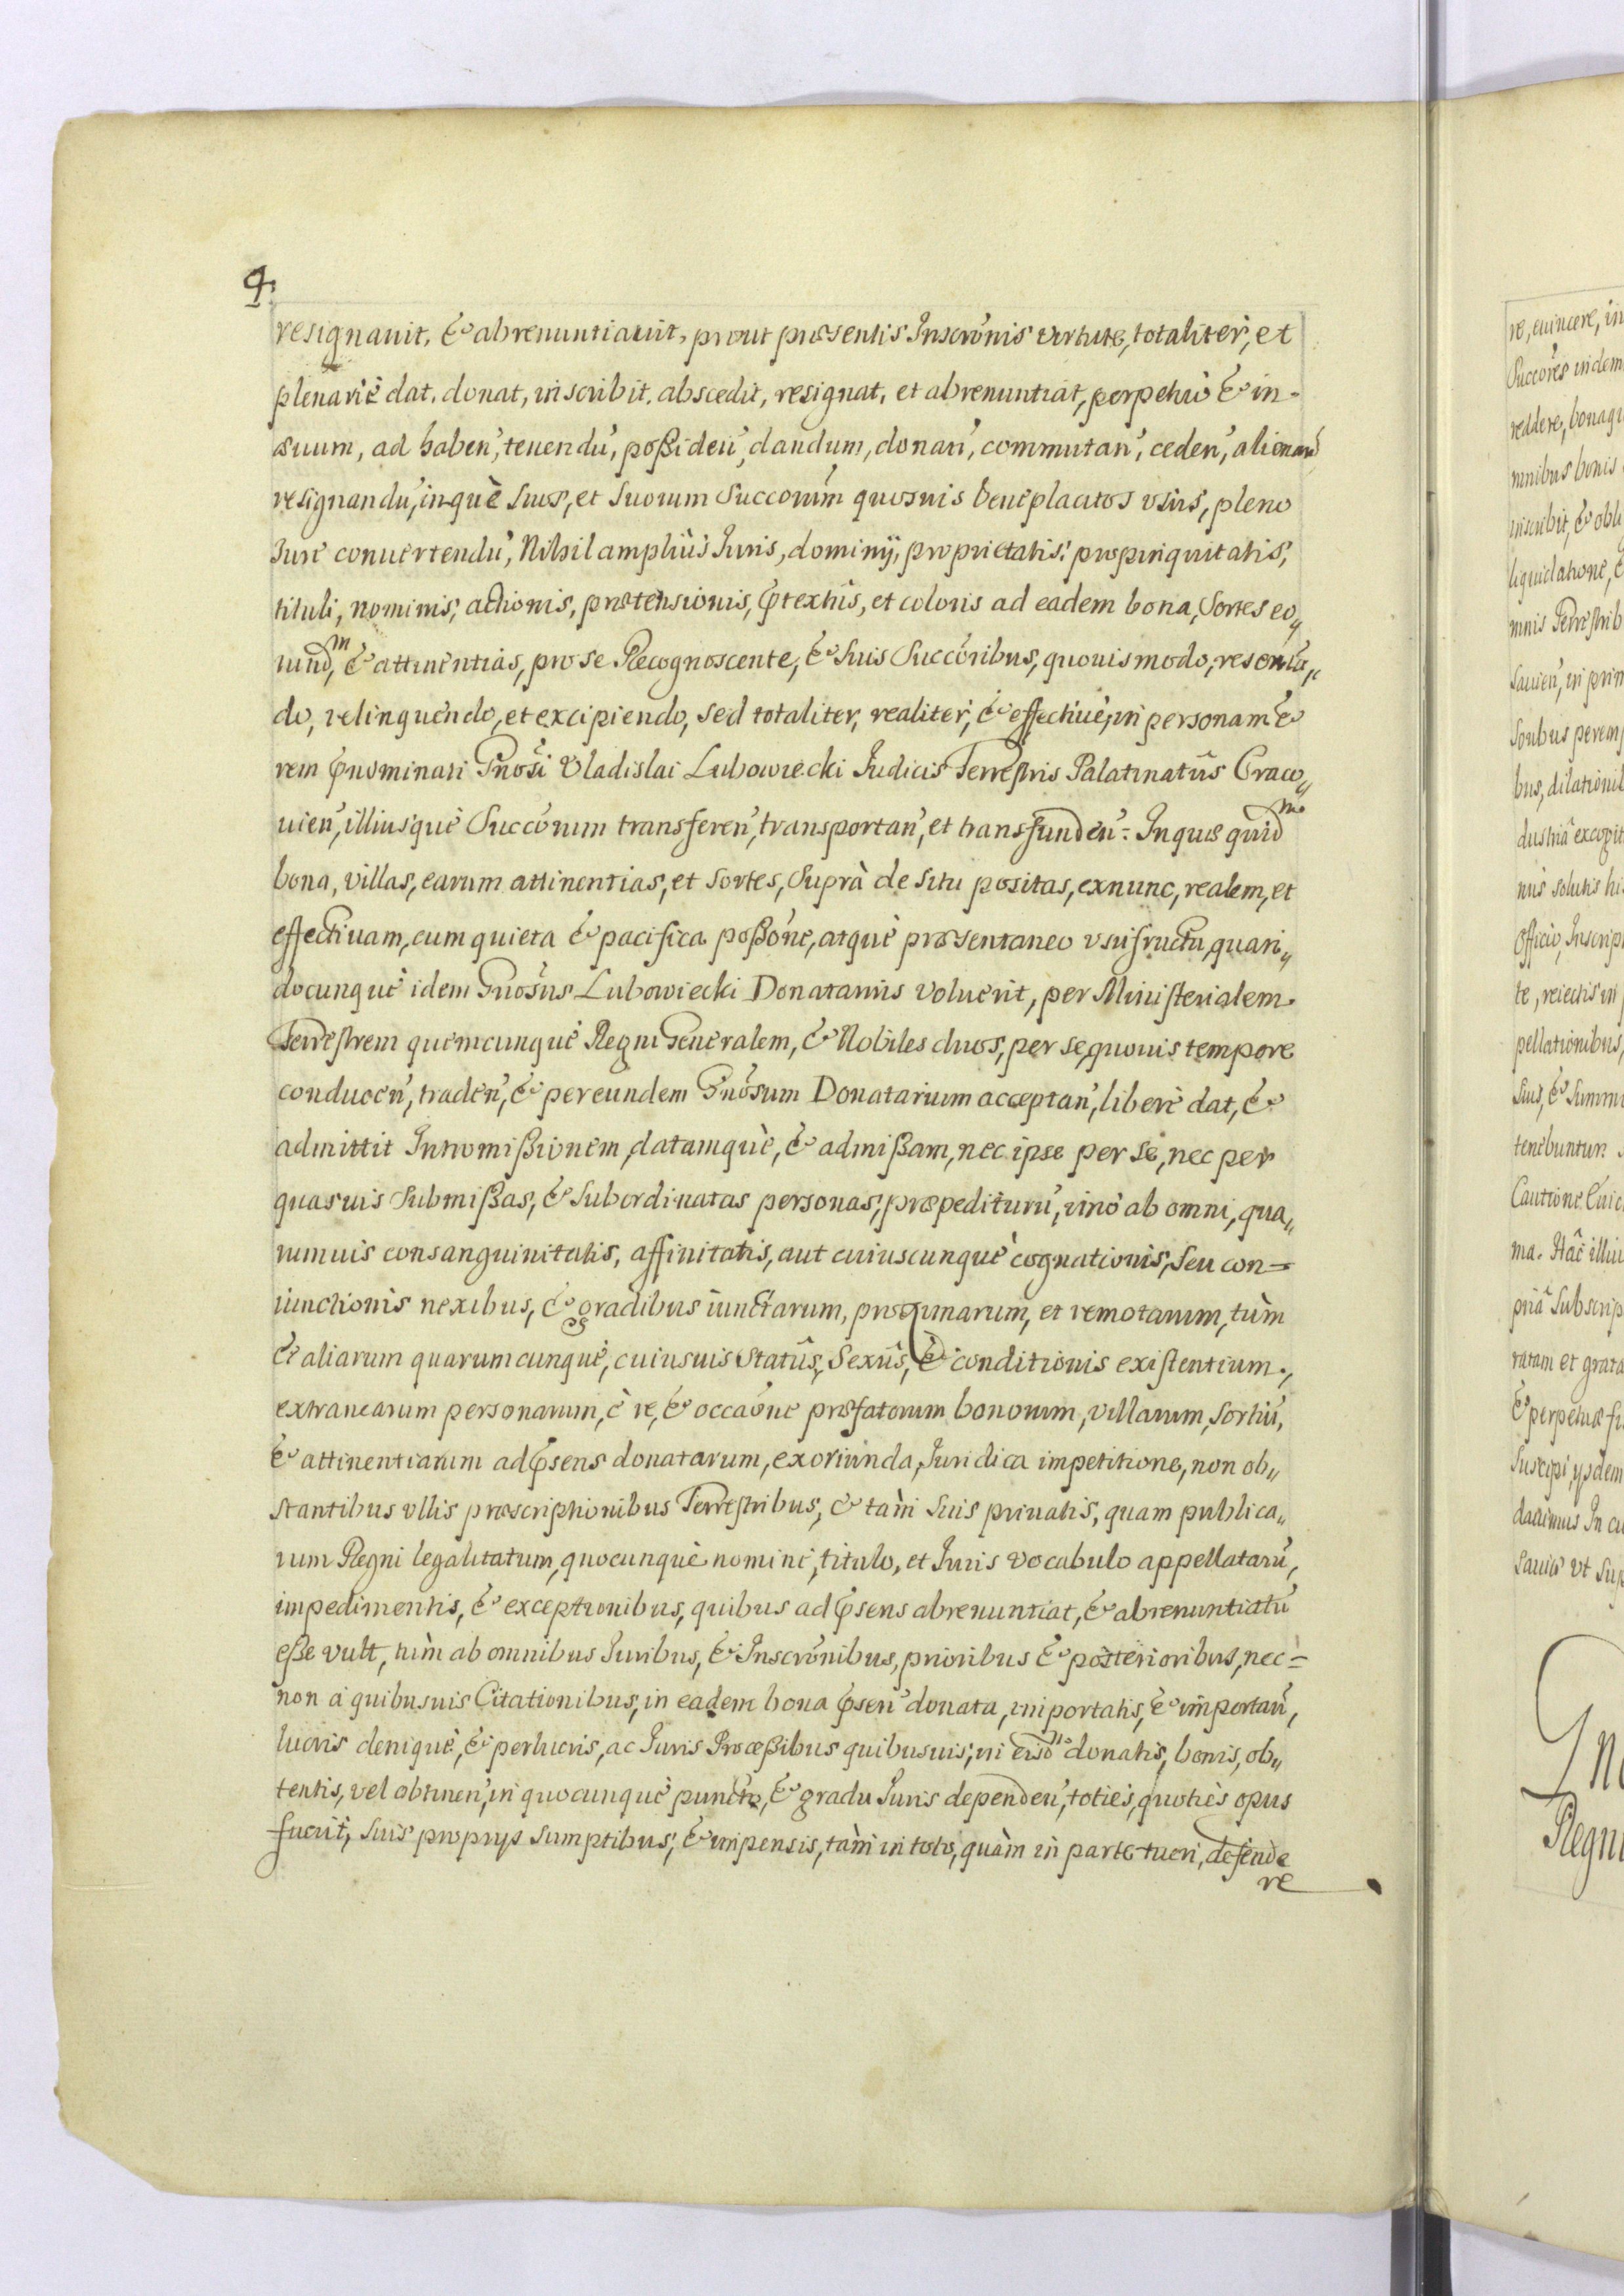 4.
resignauit, & abrenuntiauit, prout præsentis Inscrõnis virtute, totaliter, et
plenariè dat, donat, inscribit, abscedit, resignat, et abrenuntiat, perpetuò & in-
æuum, ad haben̄, tenendū, poßiden̄, dandum, donan̄, commutan̄, ceden̄, alienan̄
resignandū, inquè suos, et suorum Succorum quosuis beneplacitos vsus, pleno
Iure conuertendū, Nihil ampliùs Iuris, dominij, proprietatis, propinquitatis,
tituli, nominis, actionis, prætensionis, p̃textûs, et coloris ad eadem bona, sortes eo„
rund^m, & attinentias, pro se Recognoscente, & suis Succoribus, quouis modo, reserua„
do, relinquendo, et excipiendo, sed totaliter, realiter, & effectiuè, in personam &
rem p̃nominati Gnosi Vladislai Lubowiecki Iudicis Terrestris Palatinatûs Craco„
uien̄, illiusquè Succorum transferen̄, transportan̄, et transfunden̄: In quæ quid^m
bona, villas, earum attinentias, et sortes, suprà de situ positas, exnunc, realem, et
effectiuam, cum quieta & pacifica poßone, atquè præsentaneo vsufructu, quan„
docunquè idem Gnosus Lubowiecki Donatarius voluerit, per Ministerialem
Terrestrem quemcunquè Regni Generalem, & Nobiles duos, per se, quouis tempore
conducen̄, traden̄, & per eundem Gnosum Donatarium acceptan̄, liberè dat, &
admittit Intromißionem, datamquè, & admißam, nec ipse per se, nec per
quasuis submißas, & subordinatas personas, præpediturū, imò ab omni, qua„
rumuis consanguinitatis, affinitatis, aut cuiuscunquè cognationis, seu con=
iunctionis nexibus, & gradibus iunctarum, proximarum, et remotarum, tùm
& aliarum quarumcunquè, cuiusuis Statûs, Sexûs, & conditionis existentium,
extranearum personarum, è re, & occaone præfatorum bonorum, villarum, sortiū,
& attinentiarum ad p̃sens donatarum, exoriunda, Iuridica impetitione, non ob„
stantibus vllis præscriptionibus Terrestribus, & tàm suis priuatis, quam publica„
rum Regni legalitatum, quocunquè nomine, titulo, et Iuris vocabulo appellatarū,
impedimentis, & exceptionibus, quibus ad p̃sens abrenuntiat, & abrenuntiatū
eße vult, tùm ab omnibus Iuribus, & Inscrõnibus, prioribus & posterioribus, nec=
non à quibusuis Citationibus, in eadem bona p̃sen̄ donata, importatis, & importan̄,
lucris deniquè, & perlucris, ac Iuris Proceßibus quibusuis, in eisd^m donatis, bonis, ob„
tentis, vel obtinen̄, in quocunquè puncto, & gradu Iuris dependen̄, toties, quotiès opus
fuerit, suis proprys sumptibus, & impensis, tàm in toto, quàm in parte tueri, defende
re